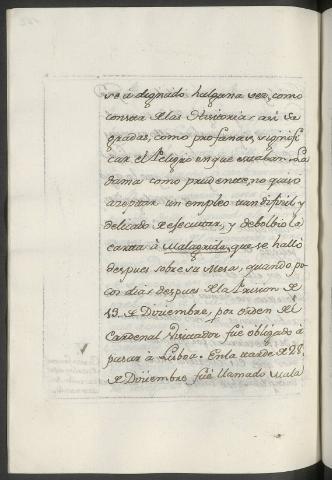 se á dignado halguna vez, como
consta de las Historias asi Sa-
gradas, como profanas, signifi-
car el Peligro en que estaban. La
dama como prudente, no quiso
azeptar un empleo tan dificil y
delicado de efecutar, y debolbio la
carta à Malagrida, que se hallo
despues sobre su Mesa, quando po-
cos dias despues de la Prision de
13. de Diziembre, por orden del
Cardenal Visitador fuè obligado à
pasar à Lisboa. En la tarde de 28.
de Diziembre fuè llamado Mala